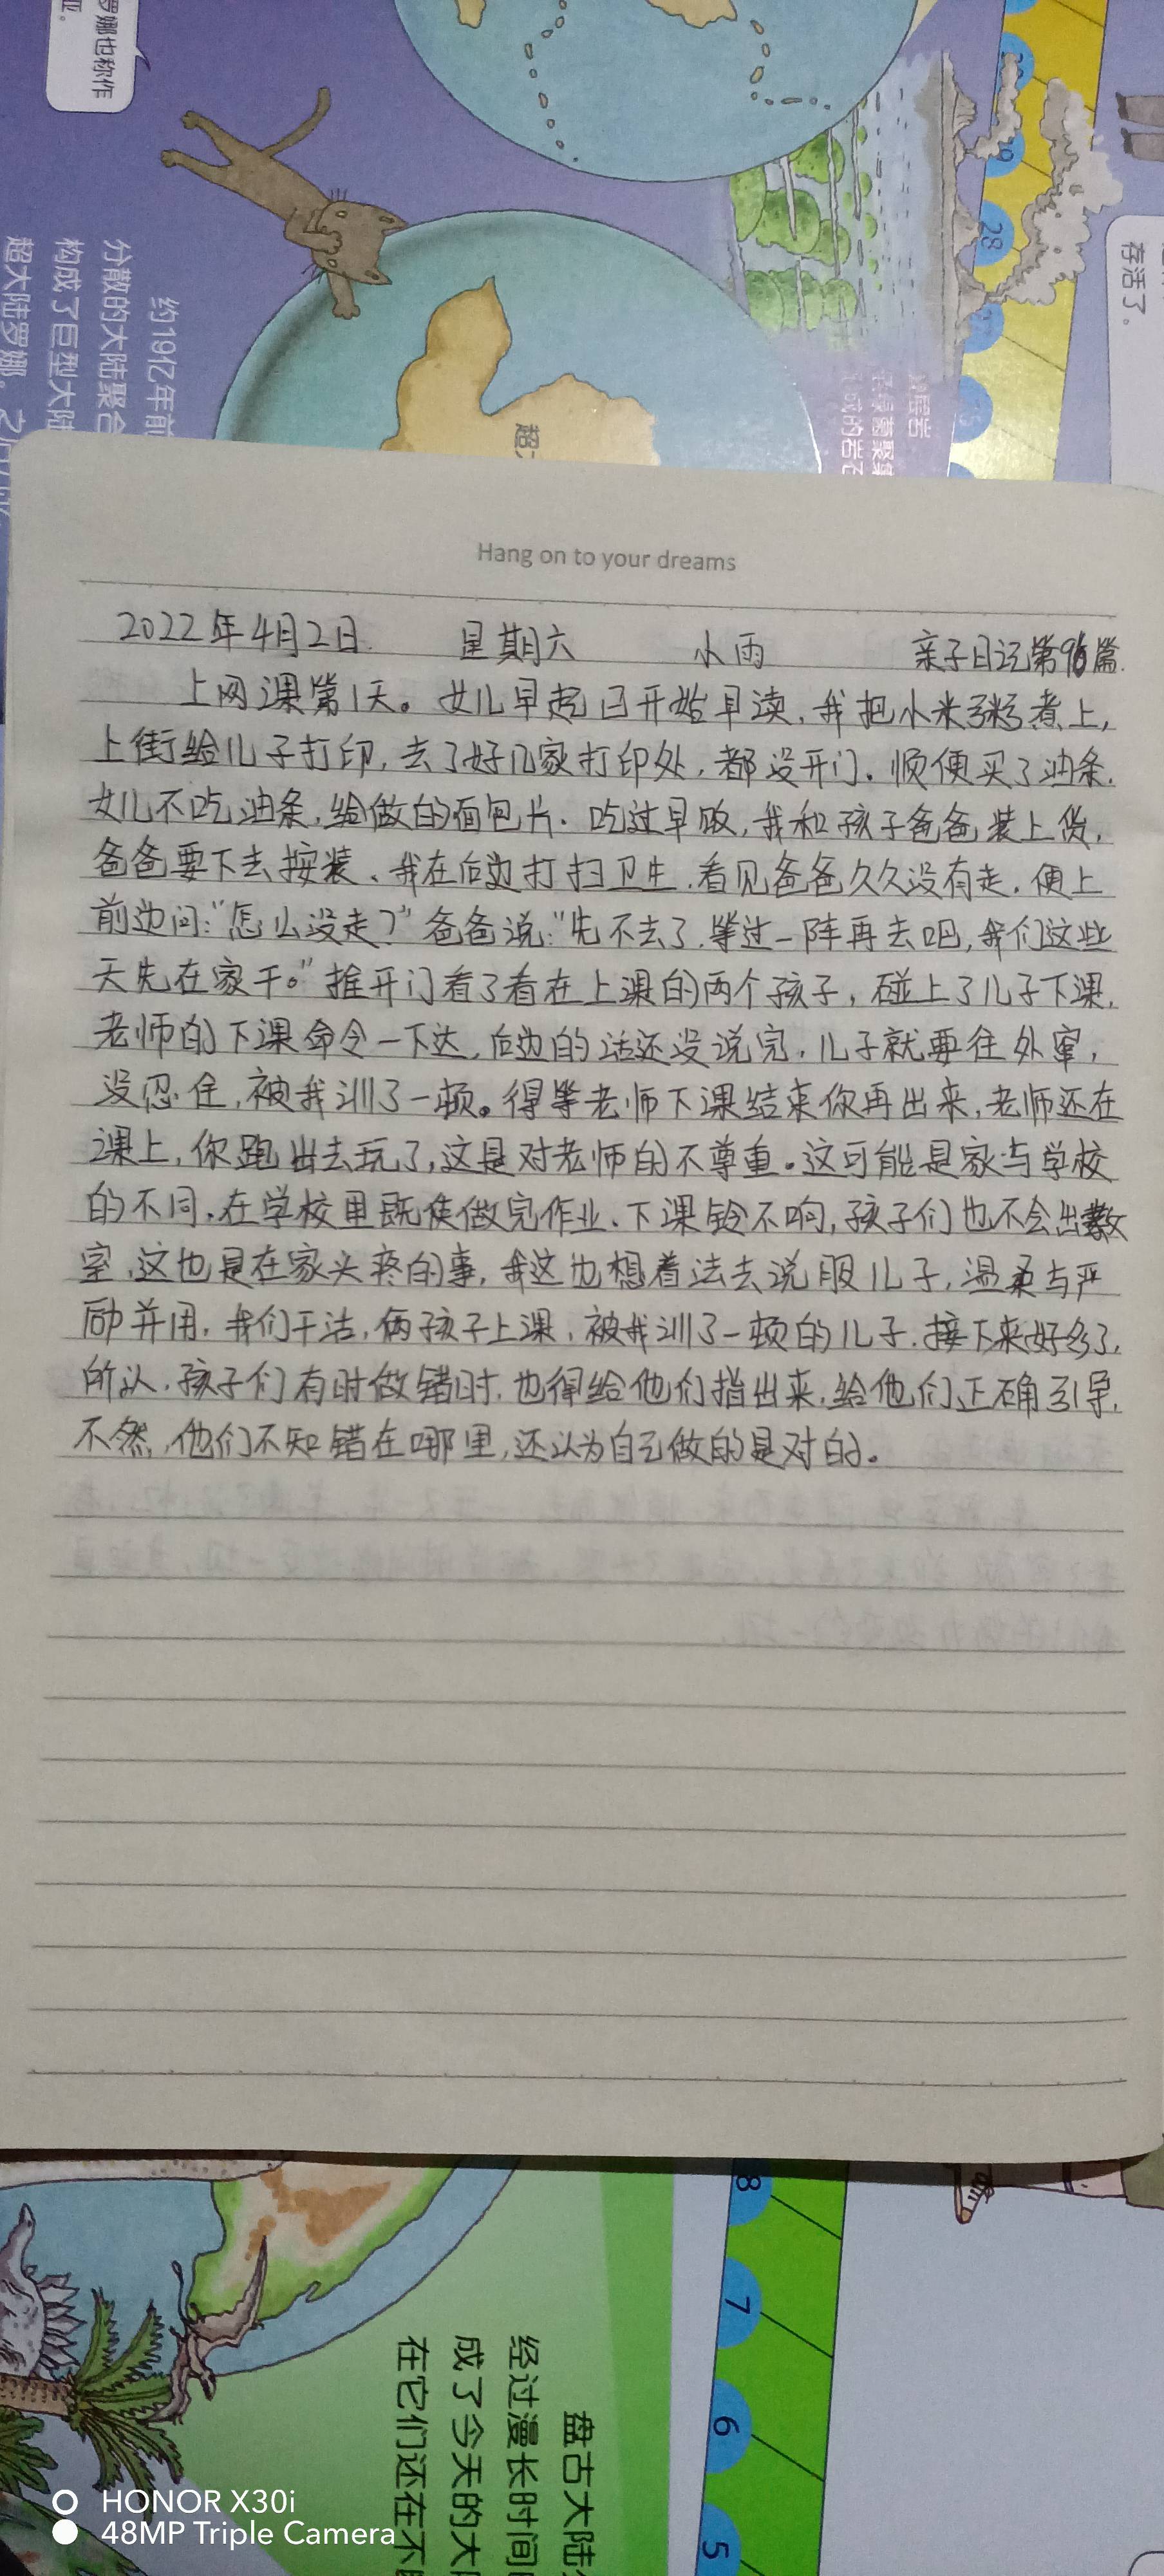 Hang on to your dreams
2022年4月2日 星期六 小雨 亲子日记第96篇
上网课第1天。女儿早起已开始早读,我把小米粥煮上,
上街给儿子打印,去了好几家打印处,都没开门.顺便买了油条.
女儿不吃油条,给做的面包片.吃过早饭,我和孩子爸爸装上货,
爸爸要下去按装、我在后边打扫卫生.看见爸爸久久没有走.便上
前边问:“怎么没走?”爸爸说:“先不去了.等过一阵再去吧,我们这些
天先在家干。”推开门看了看在上课的两个孩子,碰上了儿子下课.
老师的下课命令一下达,后边的话还没说完.儿子就要往外窜,
没忍住,被我训了一顿。得等老师下课结束你再出来,老师还在
课上,你跑出去玩了,这是对老师的不尊重.这可能是家与学校
的不同.在学校里既使做完作业、下课铃不响,孩子们也不会出教
室,这也是在家头疼的事,我这也想着法去说服儿子,温柔与严
励并用.我们干活,俩孩子上课,被我训了一顿的儿子.接下来好多了.
所认.孩子们有时做错时.也得给他们指出来,给他们正确引导.
不然,他们不知错在哪里,还认为自己做的是对的。
罗娜也称作
亚。
约19亿年前
分散的大陆聚合
构成了巨型大陆
超大陆罗娜。
存活了。
28
盘古大陆
经过漫长时间
成了今天的大
在它们还在不
8
7
6
5
HONOR X30i
48MP Triple Camera